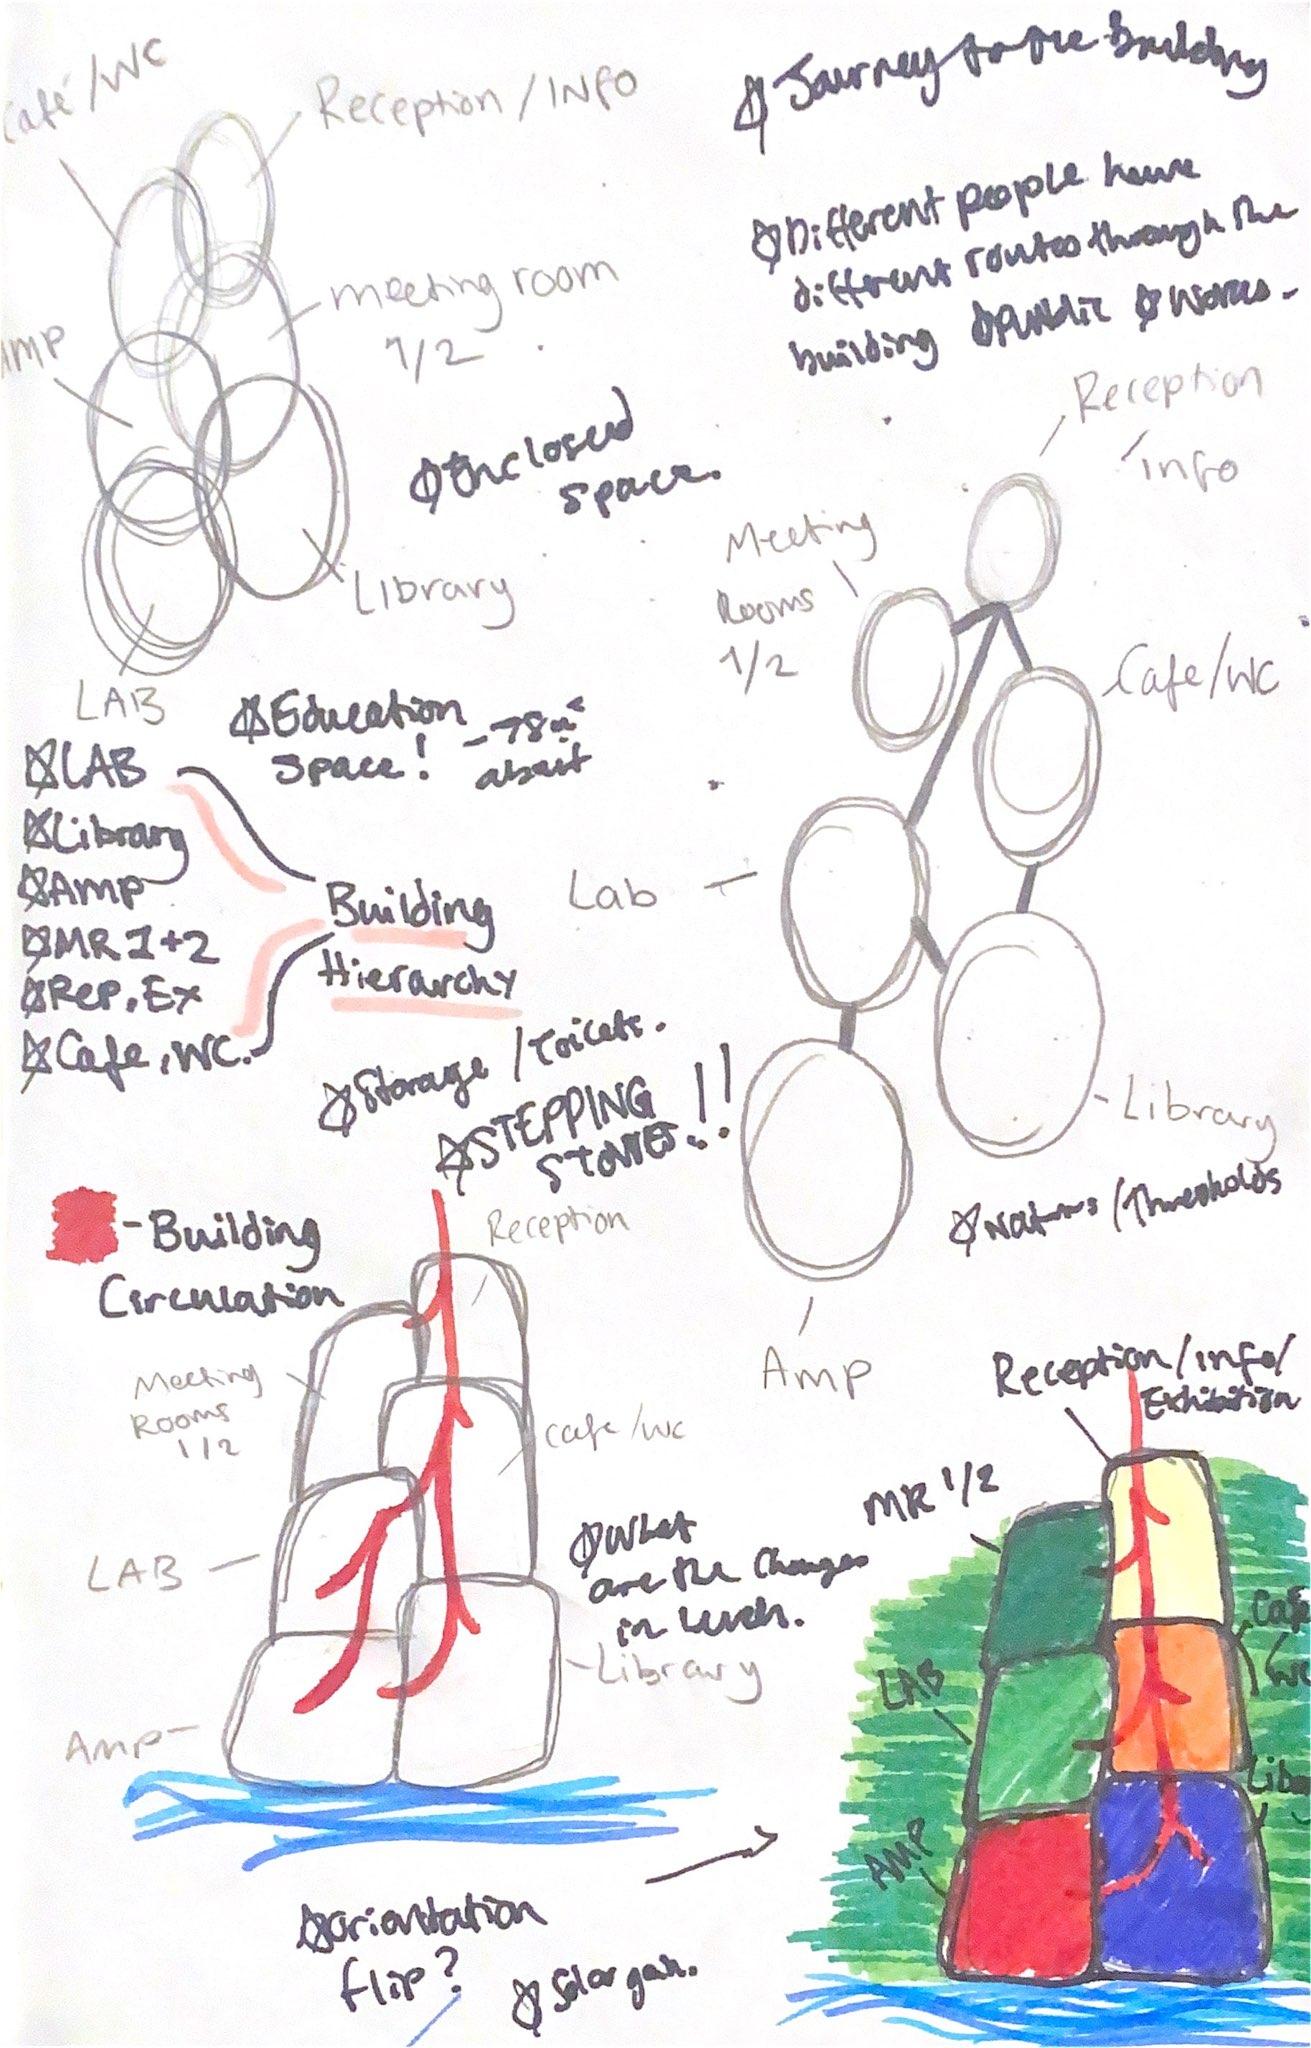 Café/WC
Reception/INFO
meeting room
1/2
AMP
Library
LAB
Journey to the building
Different people have
different routes through the
building public works.
Enclosed
space.
Reception
info
Meeting
Rooms
1/2
Cafe/WC
Lab
Library
Amp
Education
space! -78m²
about
LAB
Library
Amp
MR 1+2
Rep, Ex
Cafe, WC.
Building
Hierarchy
Storage/Toilets.
STEPPING
STONES!!
/Thresholds
-Building
Circulation
Reception
Meeting
Rooms
1/2
Cafe/WC
LAB
Library
Amp
What
are the changes
in levels.
Reception/info/
Exhibition
MR 1/2
LAB
AMP
Orientation
flip?
Solar gain.